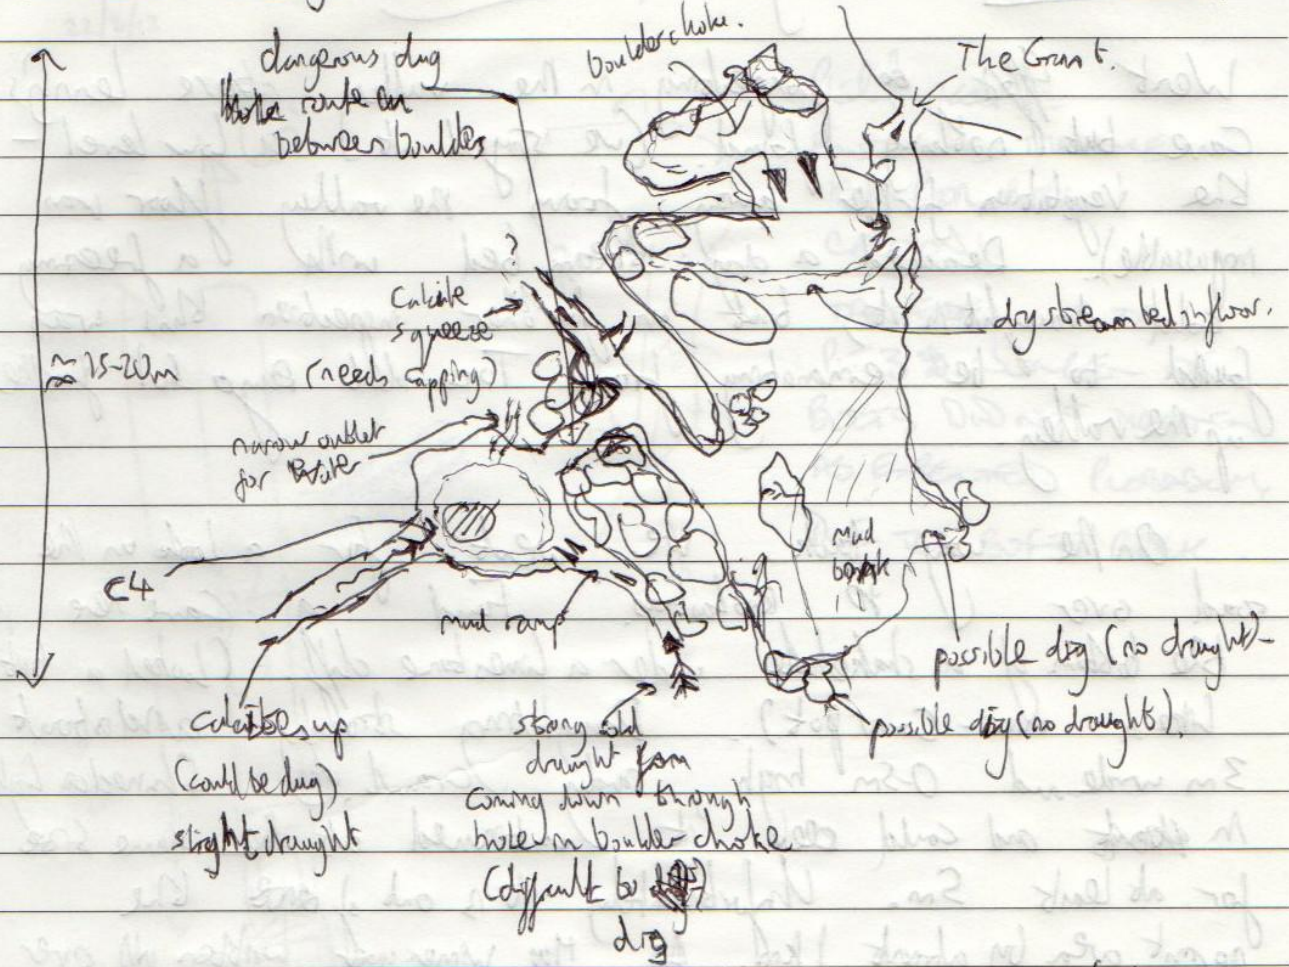 dangerous dug
route on
between boulders
boulder choke.
The Grunt.
?
Calcite
squeeze
(needs capping)
≈ 15-20m
dry stream bed in floor.
narrow outlet
for water
mud
bank
C4
mud ramp
possible dig (no draught)
possible dig (no draught).
calcites up
(could be dug)
slight draught
strong cold
draught from
coming down through
hole in boulder choke
(difficult to
dig